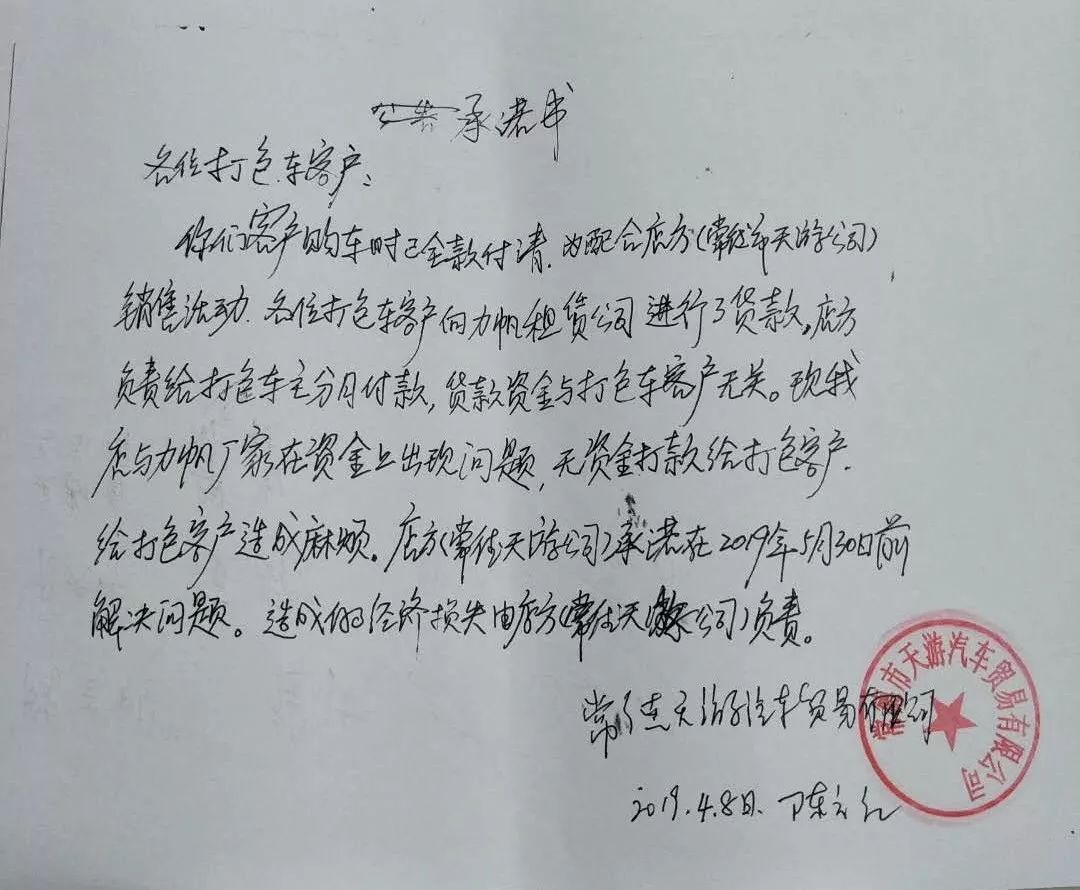 公告承诺书
各位打包车客户：
你们客户购车时已全款付清.为配合店方(常德市天游公司)
销售活动.各位打包车客户向力帆租赁公司进行了贷款,店方
负责给打包车主分月付款,贷款资金与打包车客户无关。现我
店与力帆厂家在资金上出现问题,无资金打款给打包客户.
给打包客户造成麻烦。店方(常德天游公司)承诺在2019年5月30日前
解决问题。造成的经济损失由店方(常德天游公司)负责。
常德天游汽车贸易有限公司
2019.4.8日.陈
常德市天游汽车贸易有限公司